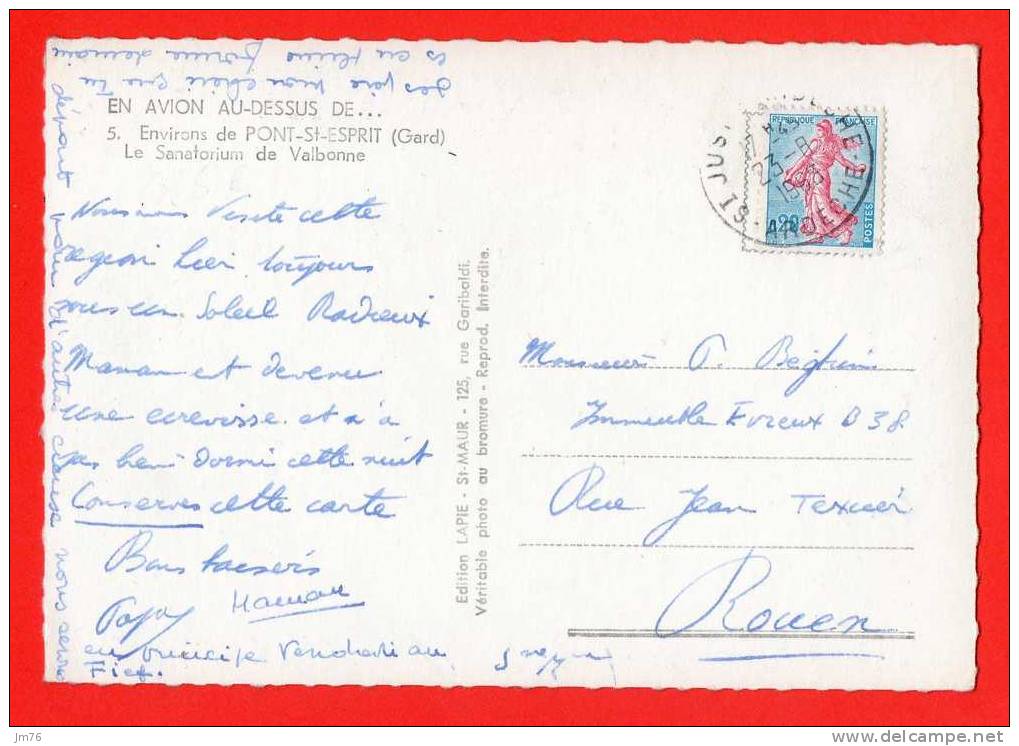 EN AVION AU-DESSUS DE...
5. Environs de PONT-St-ESPRIT (Gard)
Le Sanatorium de Valbonne
Nous nous Visité cette
région hier toujours
sous un Soleil Radieux
Maman et devenu
une ecrevisse et n'a
pas bien Dormi cette nuit
Conserves cette carte
Bons baisers
Papa Maman
en principe Vendredi au
d'autre chause nous
mon chéri que Tu
es en pleine forme demain
Edition LAPIE - St-MAUR - 125, rue Garibaldi.
Véritable photo au bromure - Reprod. Interdite.
REPUBLIQUE FRANÇAISE
0,20
POSTES
23-8
1963
ST JUST
ARDECHE
Monsieur
Immeuble Evreux B 38
Rue Jean Texcier
Rouen
jm76
www.delcampe.net